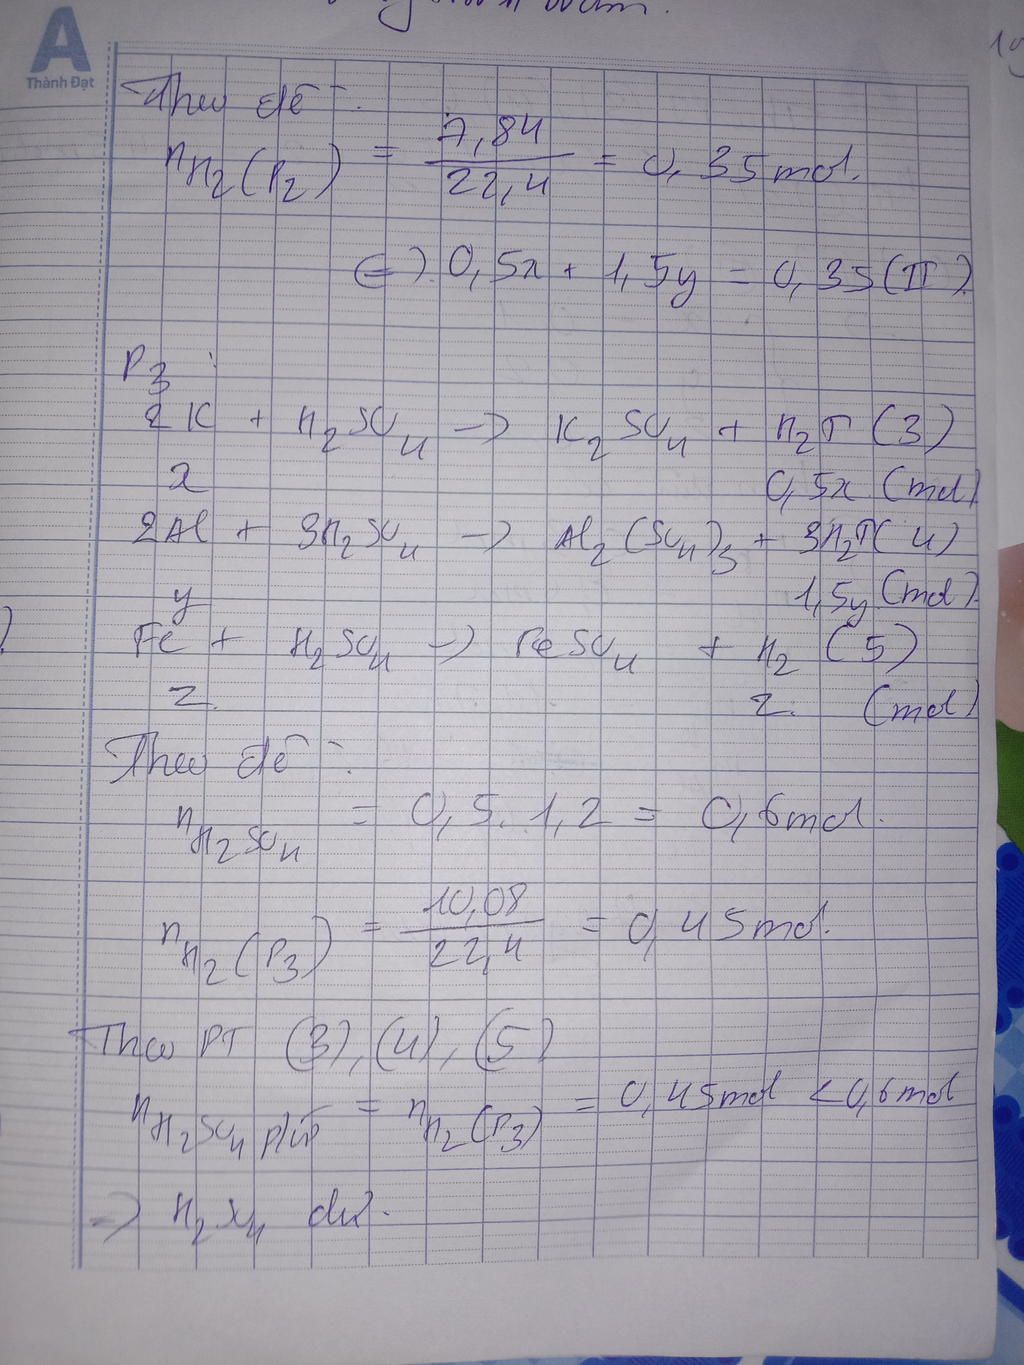 A
Thành Đạt
Theo đề:
nH2(P2) = 7,84/22,4 = 0,35 mol.
(=) 0,5x + 1,5y = 0,35 (II)
P3:
2K + H2SO4 -> K2SO4 + H2↑ (3)
x 0,5x (mol)
2Al + 3H2SO4 -> Al2(SO4)3 + 3H2↑ (4)
y 1,5y (mol)
Fe + H2SO4 -> FeSO4 + H2 (5)
z z (mol)
Theo đề:
nH2SO4 = 0,5.1,2 = 0,6 mol.
nH2(P3) = 10,08/22,4 = 0,45 mol.
Theo PT (3), (4), (5)
nH2SO4 p/ứ = nH2(P3) = 0,45 mol < 0,6 mol
=> H2SO4 dư.